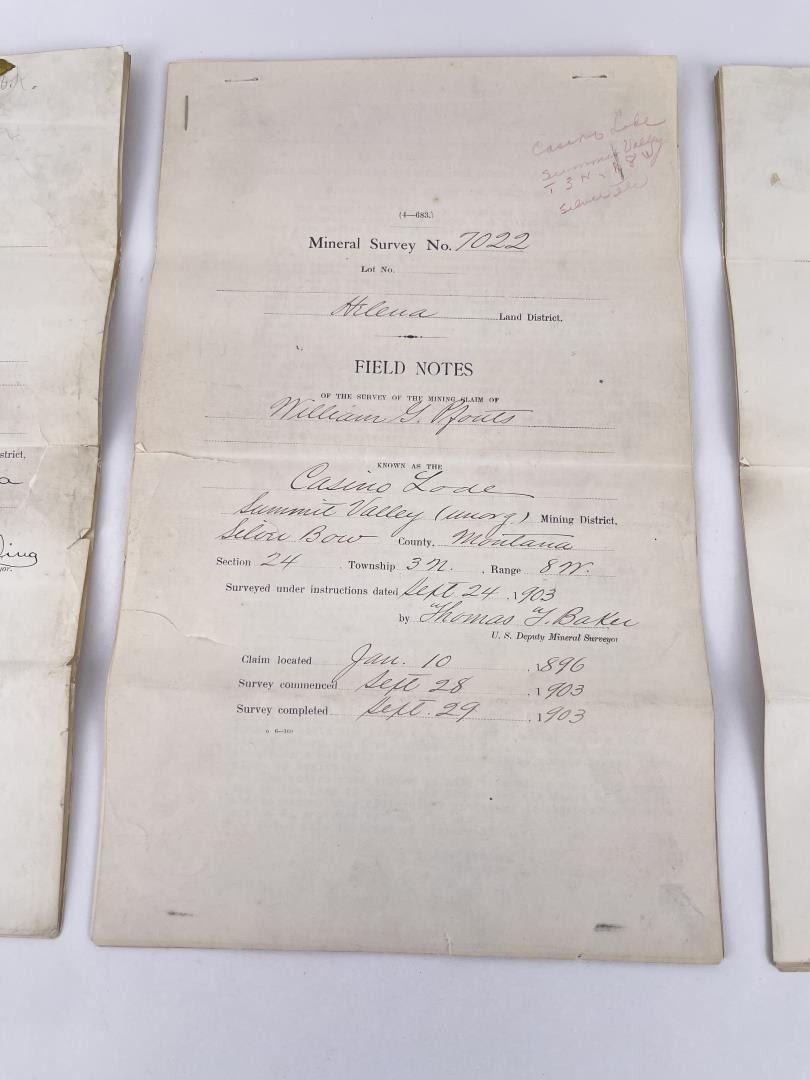 Casino Lode
Summit Valley
T 3 N, R 8 W
Silver
(4—683.)
Mineral Survey No. 7022
Lot No.
Helena Land District.
FIELD NOTES
OF THE SURVEY OF THE MINING CLAIM OF
William G. Pfouts
KNOWN AS THE
Casino Lode
Summit Valley (unorg) Mining District,
Silver Bow County, Montana
Section 24, Township 3 N., Range 8 W.
Surveyed under instructions dated Sept 24, 1903
by Thomas T. Baker
U. S. Deputy Mineral Surveyor
Claim located Jan. 10, 1896
Survey commenced Sept 28, 1903
Survey completed Sept. 29, 1903
strict,